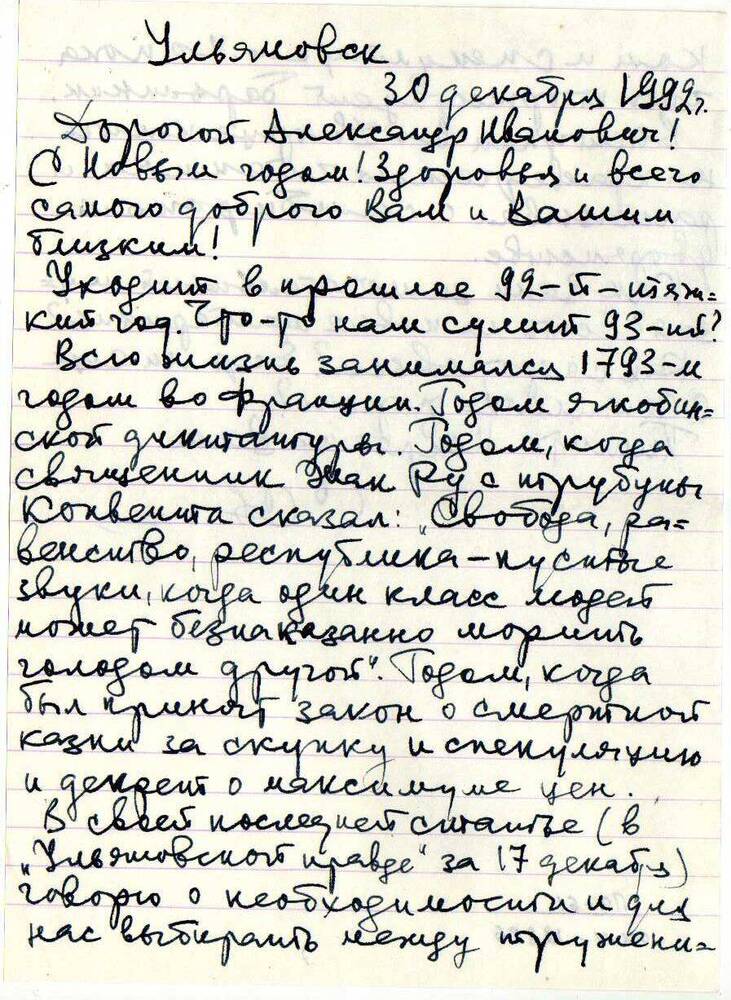 Ульяновск
30 декабря 1992 г.
Дорогой Александр Иванович!
С Новым годом! Здоровья и всего
самого доброго Вам и Вашим
близким!
Уходит в прошлое 92-й - тяж=
кий год. Что-то нам сулит 93-ий?
Всю жизнь занимался 1793-м
годом во Франции. Годом якобин=
ской диктатуры. Годом, когда
священник Жак Ру с трибуны
Конвента сказал: „Свобода, ра=
венство, республика – пустые
звуки, когда один класс людей
может безнаказанно морить
голодом другой". Годом, когда
был принят закон о смертной
казни за скупку и спекуляцию
и декрет о максимуме цен.
В своей последней статье (в
„Ульяновской правде" за 17 декабря)
говорю о необходимости и для
нас выбирать между тружени=